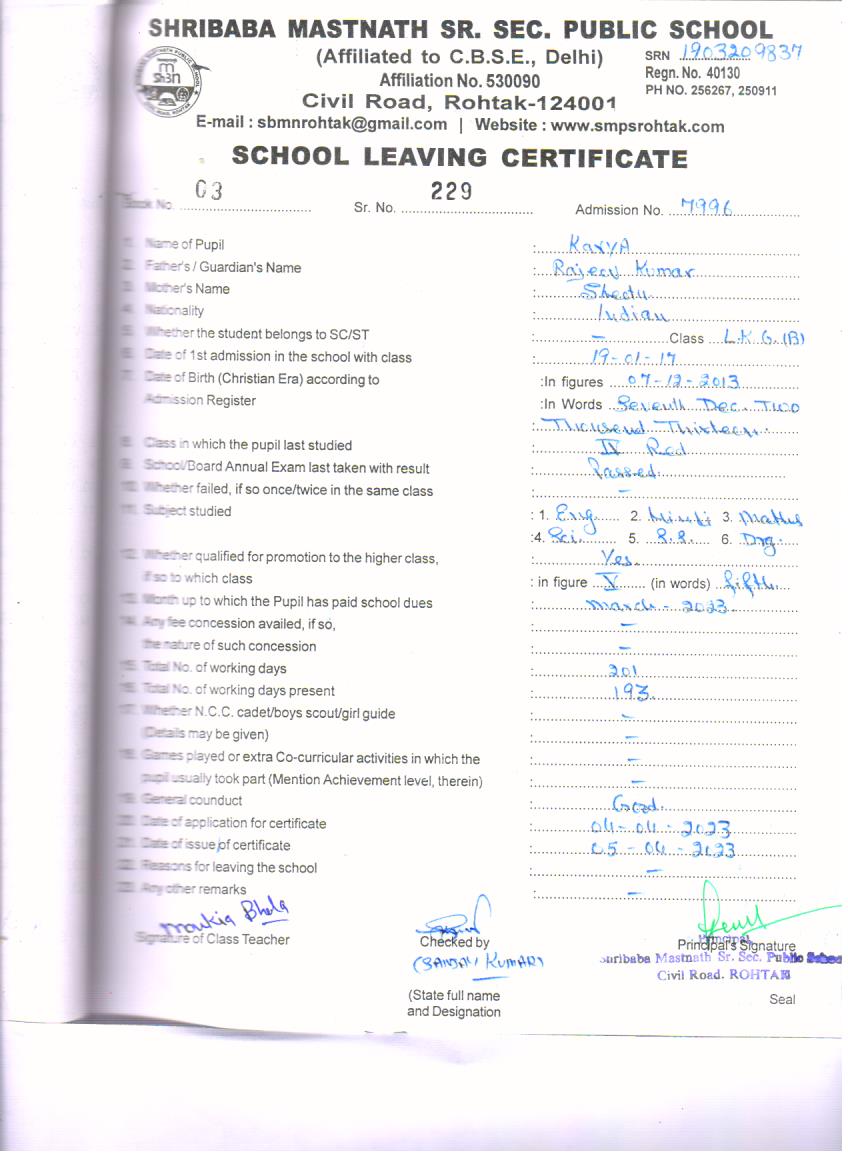 SHRIBABA MASTNATH SR. SEC. PUBLIC SCHOOL
(Affiliated to C.B.S.E., Delhi)
SRN 1903209837
Affiliation No. 530090
Regn. No. 40130
Civil Road, Rohtak-124001
PH NO. 256267, 250911
E-mail : sbmnrohtak@gmail.com | Website : www.smpsrohtak.com
SCHOOL LEAVING CERTIFICATE
Book No. 03 Sr. No. 229 Admission No. 7996
1. Name of Pupil : Kavya
2. Father's / Guardian's Name : Rajeev Kumar
3. Mother's Name :
4. Nationality : Indian
5. Whether the student belongs to SC/ST : – Class L.K.G.(B)
6. Date of 1st admission in the school with class : 19-01-17
7. Date of Birth (Christian Era) according to :In figures 07-12-2013
Admission Register :In Words Seventh Dec. Two
Thousand Thirteen.
8. Class in which the pupil last studied : IV Red
9. School/Board Annual Exam last taken with result : Passed.
10. Whether failed, if so once/twice in the same class : –
11. Subject studied : 1. Eng 2. Hindi 3. Maths
:4. Sci. 5. S.S. 6. Drg.
12. Whether qualified for promotion to the higher class, : Yes.
if so to which class : in figure V (in words) fifth
13. Month up to which the Pupil has paid school dues : March - 2023
14. Any fee concession availed, if so, : –
the nature of such concession : –
15. Total No. of working days : 201
16. Total No. of working days present : 193
17. Whether N.C.C. cadet/boys scout/girl guide : –
(Details may be given) : –
18. Games played or extra Co-curricular activities in which the : –
pupil usually took part (Mention Achievement level, therein) : –
19. General counduct : Good.
20. Date of application for certificate : 04-04-2023
21. Date of issue of certificate : 05-04-2023
22. Reasons for leaving the school : –
23. Any other remarks : –
Signature of Class Teacher
Checked by
Principal's Signature
Principal
(SANJAY KUMAR)
Shribaba Mastnath Sr. Sec. Public School
Civil Road. ROHTAK
(State full name
and Designation
Seal